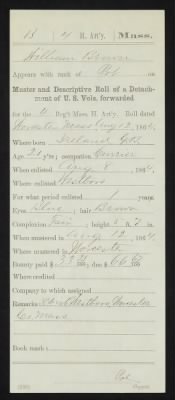 B | 4 | H. Art'y. | Mass.
William Brown
Appears with rank of Pvt. on
Master and Descriptive Roll of a Detach-
ment of U. S. Vols. forwarded
for the 4 Reg't Mass. H. Arty. Roll dated
Worcester Mass Aug 12, 1864.
Where born Ireland
Age 21 y'rs; occupation Currier
When enlisted Aug 8, 1864.
Where enlisted Westboro
For what period enlisted 1 years.
Eyes Blue; hair Brown
Complexion Fair; height 5 ft. in.
When mustered in Aug 12, 1864.
Where mustered in Worcester
Bounty paid $33 100; due $66 100
Where credited
Company to which assigned
Remarks: Westboro, Worcester
Co Mass
Book mark:
Copyist.